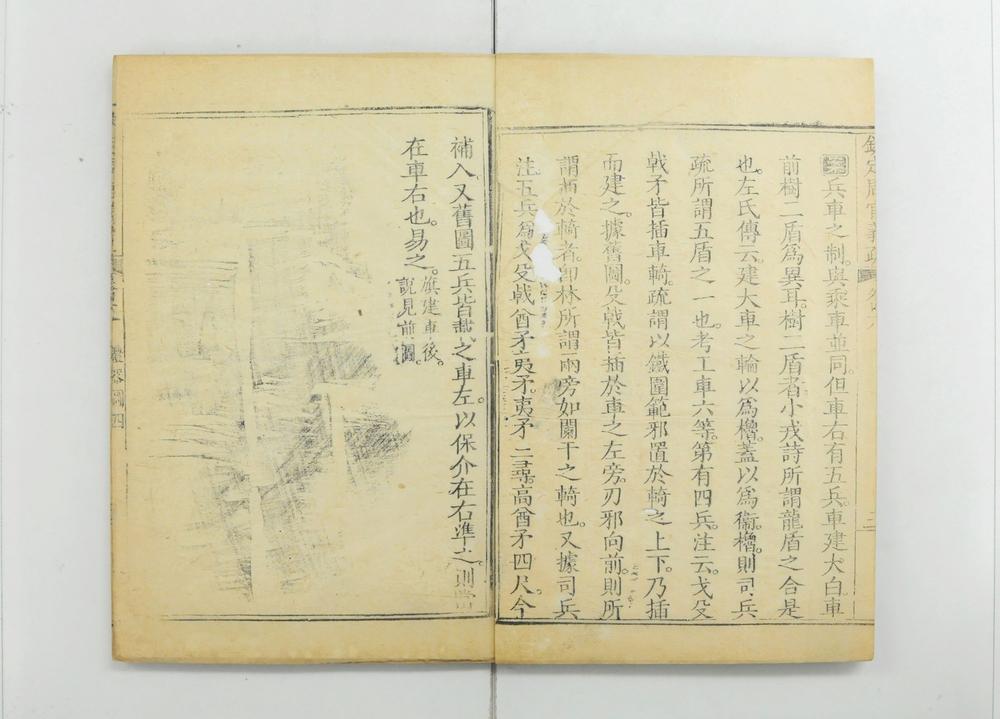 兵車之制。與乘車並同。但車右有五兵。車建大白。車
前樹二盾爲異耳。樹二盾者。小戎詩所謂龍盾之合是
也。左氏傳云。建大車之輪以爲櫓。蓋以爲衞。櫓。則司兵
疏所謂五盾之一也。考工車六等。第有四兵。注云。戈殳
戟矛皆插車輢。疏謂以鐵圍範邪置於輢之上下。乃插
而建之。據舊圖。殳戟皆插於車之左旁。刃邪向前。則所
謂插於輢者。卽林所謂兩旁如闌干之輢也。又據司兵
注。五兵爲戈殳戟酋矛夷矛。夷矛二尋。高酋矛四尺。今
補入。又舊圖五兵皆載之車左。以保介在右準之。則當
在車右也。易之。
旗建車後。
說見前圖。
欽定周官義疏
禮器圖四